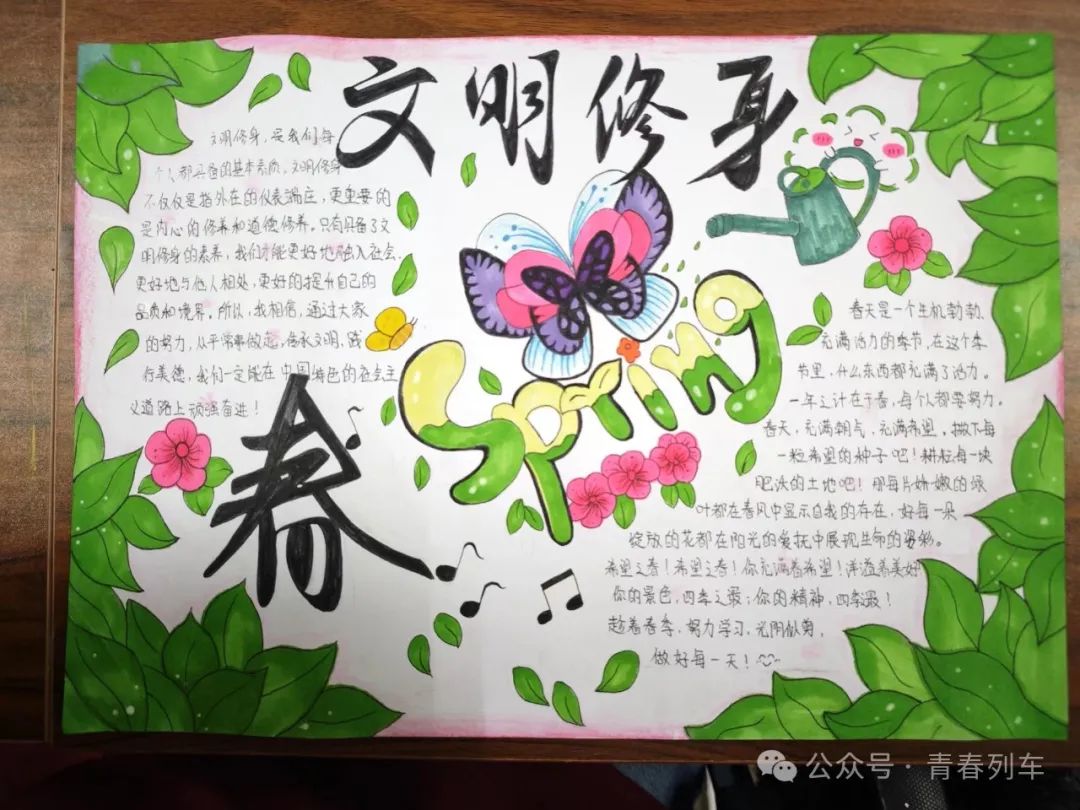 文明修身
文明修身，是我们每
一个人都具备的基本素质，文明修身
不仅仅是指外在的仪表端庄，更重要的
是内心的修养和道德修养。只有具备了文
明修身的素养，我们才能更好地融入社会，
更好地与他人相处，更好的提升自己的
品质和境界，所以，我相信，通过大家
的努力，从平常事做起，传承文明，践
行美德，我们一定能在中国特色的社会主
义道路上顽强奋进！
春
Spring
春天是一个生机勃勃、
充满活力的季节，在这个季
节里，什么东西都充满了活力。
一年之计在于春，每个人都要努力。
春天，充满朝气，充满希望。撒下每
一粒希望的种子吧！耕耘每一块
肥沃的土地吧！那每片娇嫩的绿
叶都在春风中显示自我的存在，好每一朵
绽放的花都在阳光的爱抚中展现生命的姿彩。
希望之春！希望之春！你充满着希望！洋溢着美好
你的景色，四季之最；你的精神，四季最！
趁着春季，努力学习，光阴似箭，
做好每一天！
公众号·青春列车